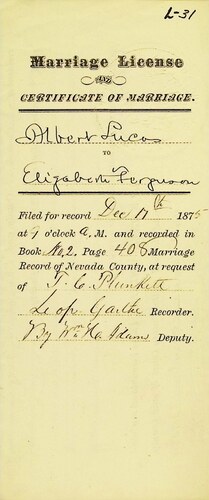 L-31
Marriage License
AND
CERTIFICATE OF MARRIAGE.
Albert Lucas
TO
Elizabeth Ferguson
Filed for record Dec 17th 1875
at 9 o'clock A. M. and recorded in
Book No. 2, Page 408 Marriage
Record of Nevada County, at request
of T. C. Plunkett
Leop Garthe Recorder.
By Wm H. Adams Deputy.